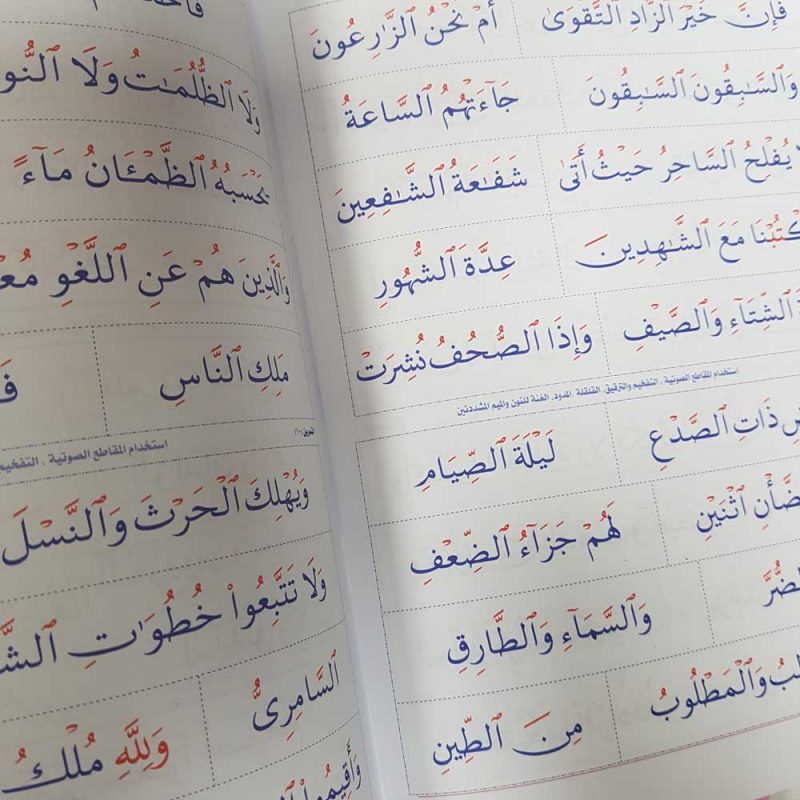 فَإِنَّ خَيْرَ ٱلزَّادِ ٱلتَّقْوَىٰ أَمْ نَحْنُ ٱلزَّٰرِعُونَ
وَٱلسَّٰبِقُونَ ٱلسَّٰبِقُونَ جَآءَتْهُمُ ٱلسَّاعَةُ
يُفْلِحُ ٱلسَّاحِرُ حَيْثُ أَتَىٰ شَفَٰعَةُ ٱلشَّٰفِعِينَ
مَعَ ٱلشَّٰهِدِينَ عِدَّةَ ٱلشُّهُورِ
ٱلشِّتَآءِ وَٱلصَّيْفِ وَإِذَا ٱلصُّحُفُ نُشِرَتْ
استخدام المقاطع الصوتية . التفخيم والترقيق. القلقلة .المدود. الغنة للنون والميم المشددتين
ذَاتِ ٱلصَّدْعِ لَيْلَةَ ٱلصِّيَامِ
ٱثْنَيْنِ لَهُمْ جَزَآءُ ٱلضِّعْفِ
وَٱلسَّمَآءِ وَٱلطَّارِقِ
وَٱلْمَطْلُوبُ مِنَ ٱلطِّينِ
وَلَا ٱلظُّلُمَٰتُ وَلَا
يَحْسَبُهُ ٱلظَّمْـَٔانُ مَآءً
وَٱلَّذِينَ هُمْ عَنِ ٱللَّغْوِ
مَلِكِ ٱلنَّاسِ
استخدام المقاطع الصوتية .
وَيُهْلِكَ ٱلْحَرْثَ وَٱلنَّسْلَ
وَلَا تَتَّبِعُوا۟ خُطُوَٰتِ
ٱلسَّامِرِىُّ
وَلِلَّهِ مُلْكُ
وَأَقِيمُوا۟